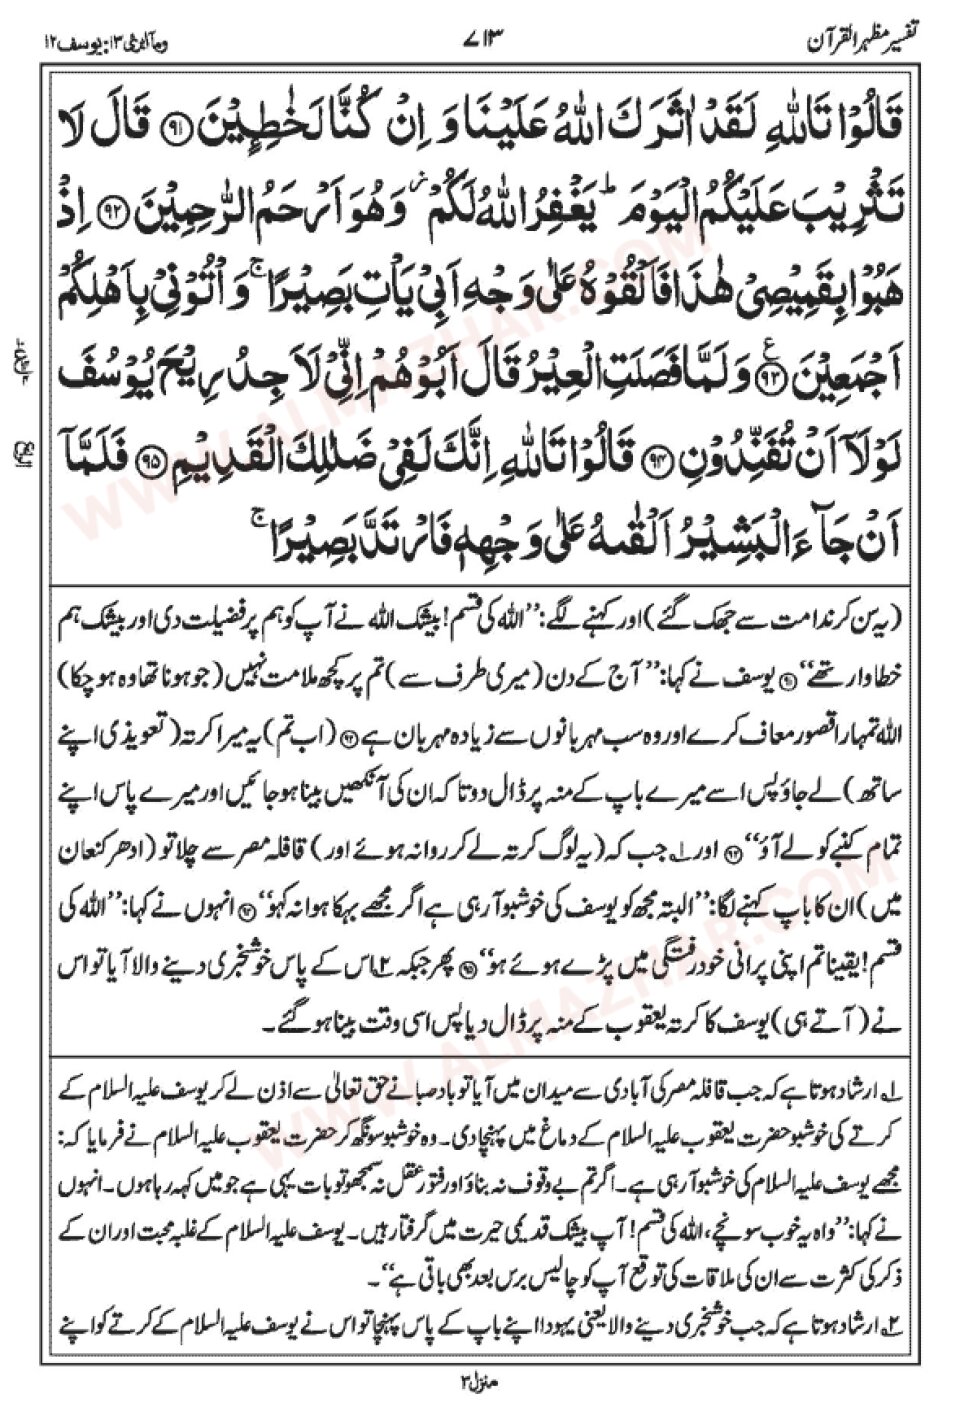 تفسیر مظہر القرآن
۷۱۳
وما ابرئ ۱۳: یوسف ۱۲
قَالُوْا تَاللّٰهِ لَقَدْ اٰثَرَكَ اللّٰهُ عَلَيْنَا وَ اِنْ كُنَّا لَخٰطِـِٕيْنَ ﴿۹۱﴾ قَالَ لَا
تَثْرِيْبَ عَلَيْكُمُ الْيَوْمَ ؕ يَغْفِرُ اللّٰهُ لَكُمْ ؗ وَهُوَ اَرْحَمُ الرّٰحِمِيْنَ ﴿۹۲﴾ اِذْ
هَبُوْا بِقَمِيْصِيْ هٰذَا فَاَلْقُوْهُ عَلٰى وَجْهِ اَبِيْ يَاْتِ بَصِيْرًا ۚ وَاْتُوْنِيْ بِاَهْلِكُمْ
اَجْمَعِيْنَ ﴿۹۳﴾ ع وَلَمَّا فَصَلَتِ الْعِيْرُ قَالَ اَبُوْهُمْ اِنِّيْ لَاَجِدُ رِيْحَ يُوْسُفَ
لَوْلَاۤ اَنْ تُفَنِّدُوْنِ ﴿۹۴﴾ قَالُوْا تَاللّٰهِ اِنَّكَ لَفِيْ ضَلٰلِكَ الْقَدِيْمِ ﴿۹۵﴾ فَلَمَّاۤ
اَنْ جَآءَ الْبَشِيْرُ اَلْقٰىهُ عَلٰى وَجْهِهٖ فَارْتَدَّ بَصِيْرًا ۚ
(یہ سن کر ندامت سے جھک گئے) اور کہنے لگے: ’’اللہ کی قسم! بیشک اللہ نے آپ کو ہم پر فضیلت دی اور بیشک ہم
خطاوار تھے‘‘ ﴿۹۱﴾ یوسف نے کہا: ’’آج کے دن (میری طرف سے) تم پر کچھ ملامت نہیں (جو ہونا تھا وہ ہوچکا)
اللہ تمہارا قصور معاف کرے اور وہ سب مہربانوں سے زیادہ مہربان ہے ﴿۹۲﴾ (اب تم) یہ میرا کرتہ (تعویذی اپنے
ساتھ) لے جاؤ پس اسے میرے باپ کے منہ پر ڈال دو تاکہ ان کی آنکھیں بینا ہوجائیں اور میرے پاس اپنے
تمام کنبے کو لے آؤ‘‘ ﴿۹۳﴾ اور ۱؎ جب کہ (یہ لوگ کرتہ لے کر روانہ ہوئے اور) قافلہ مصر سے چلا تو (ادھر کنعان
میں) ان کا باپ کہنے لگا: ’’البتہ مجھ کو یوسف کی خوشبو آرہی ہے اگر مجھے بہکا ہوا نہ کہو‘‘ ﴿۹۴﴾ انہوں نے کہا: ’’اللہ کی
قسم! یقیناً تم اپنی پرانی خود رفتگی میں پڑے ہوئے ہو‘‘ ﴿۹۵﴾ پھر جبکہ ۲؎ اس کے پاس خوشخبری دینے والا آیا تو اس
نے (آتے ہی) یوسف کا کرتہ یعقوب کے منہ پر ڈال دیا پس اسی وقت بینا ہوگئے۔
۱؎ ارشاد ہوتا ہے کہ جب قافلہ مصر کی آبادی سے میدان میں آیا تو باد صبا نے حق تعالیٰ سے اذن لے کر یوسف علیہ السلام کے
کرتے کی خوشبو حضرت یعقوب علیہ السلام کے دماغ میں پہنچادی۔ وہ خوشبو سونگھ کر حضرت یعقوب علیہ السلام نے فرمایا کہ:
مجھے یوسف علیہ السلام کی خوشبو آرہی ہے۔ اگر تم بے وقوف نہ بناؤ اور فتور عقل نہ سمجھو تو بات یہی ہے جو میں کہہ رہا ہوں۔ انہوں
نے کہا: ’’واہ یہ خوب سونچے، اللہ کی قسم! آپ بیشک قدیمی حیرت میں گرفتار ہیں۔ یوسف علیہ السلام کے غلبہ محبت اور ان کے
ذکر کی کثرت سے ان کی ملاقات کی توقع آپ کو چالیس برس بعد بھی باقی ہے‘‘۔
۲؎ ارشاد ہوتا ہے کہ جب خوشخبری دینے والا یعنی یہودا اپنے باپ کے پاس پہنچا تو اس نے یوسف علیہ السلام کے کرتے کو اپنے
منزل ۳
WWW.ALMAZHAR.COM
WWW.ALMAZHAR.COM